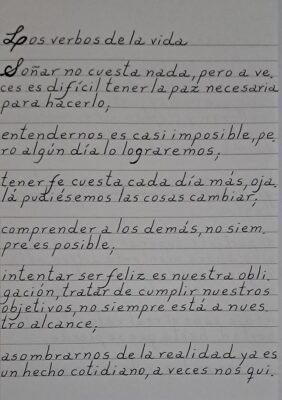 Los verbos de la vida
Soñar no cuesta nada, pero a ve.
ces es difícil tener la paz necesaria
para hacerlo;
entendernos es casi imposible, pe.
ro algún día lo lograremos;
tener fe cuesta cada día más, oja.
lá pudiésemos las cosas cambiar;
comprender a los demás, no siem.
pre es posible;
intentar ser feliz es nuestra obli.
gación, tratar de cumplir nuestros
objetivos, no siempre está a nues.
tro alcance;
asombrarnos de la realidad ya es
un hecho cotidiano, a veces nos qui.